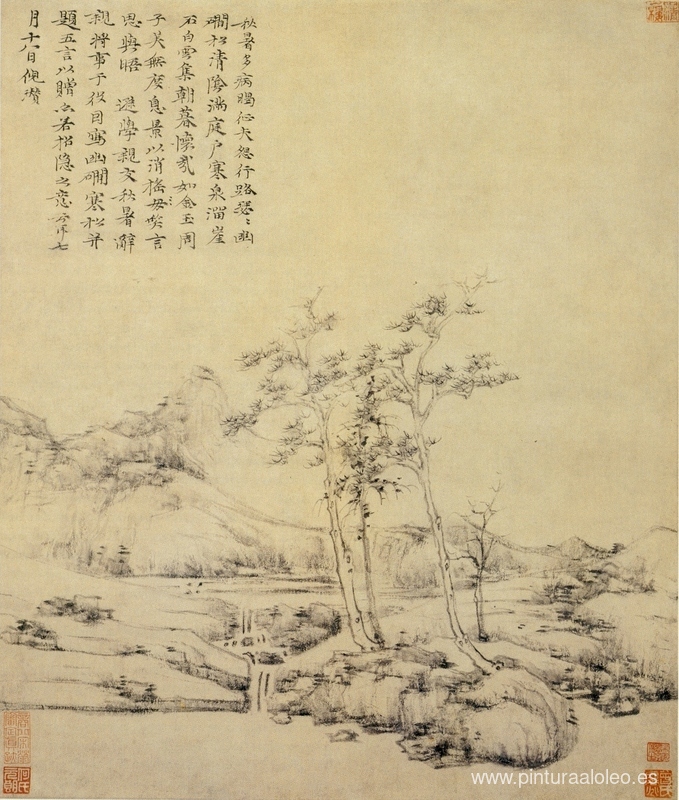 秋暑多病暍征夫怨行路瑟〻幽
磵松清陰滿庭户寒泉溜崖
石白雲集朝暮懷哉如金玉周
子美無度息景以消搖笑言
思與晤 遜學親友秋暑辭
親將事于役因寫幽磵寒松并
題五言以贈亦若招隱之意云耳七
月十八日倪瓚
www.pinturaaloleo.es